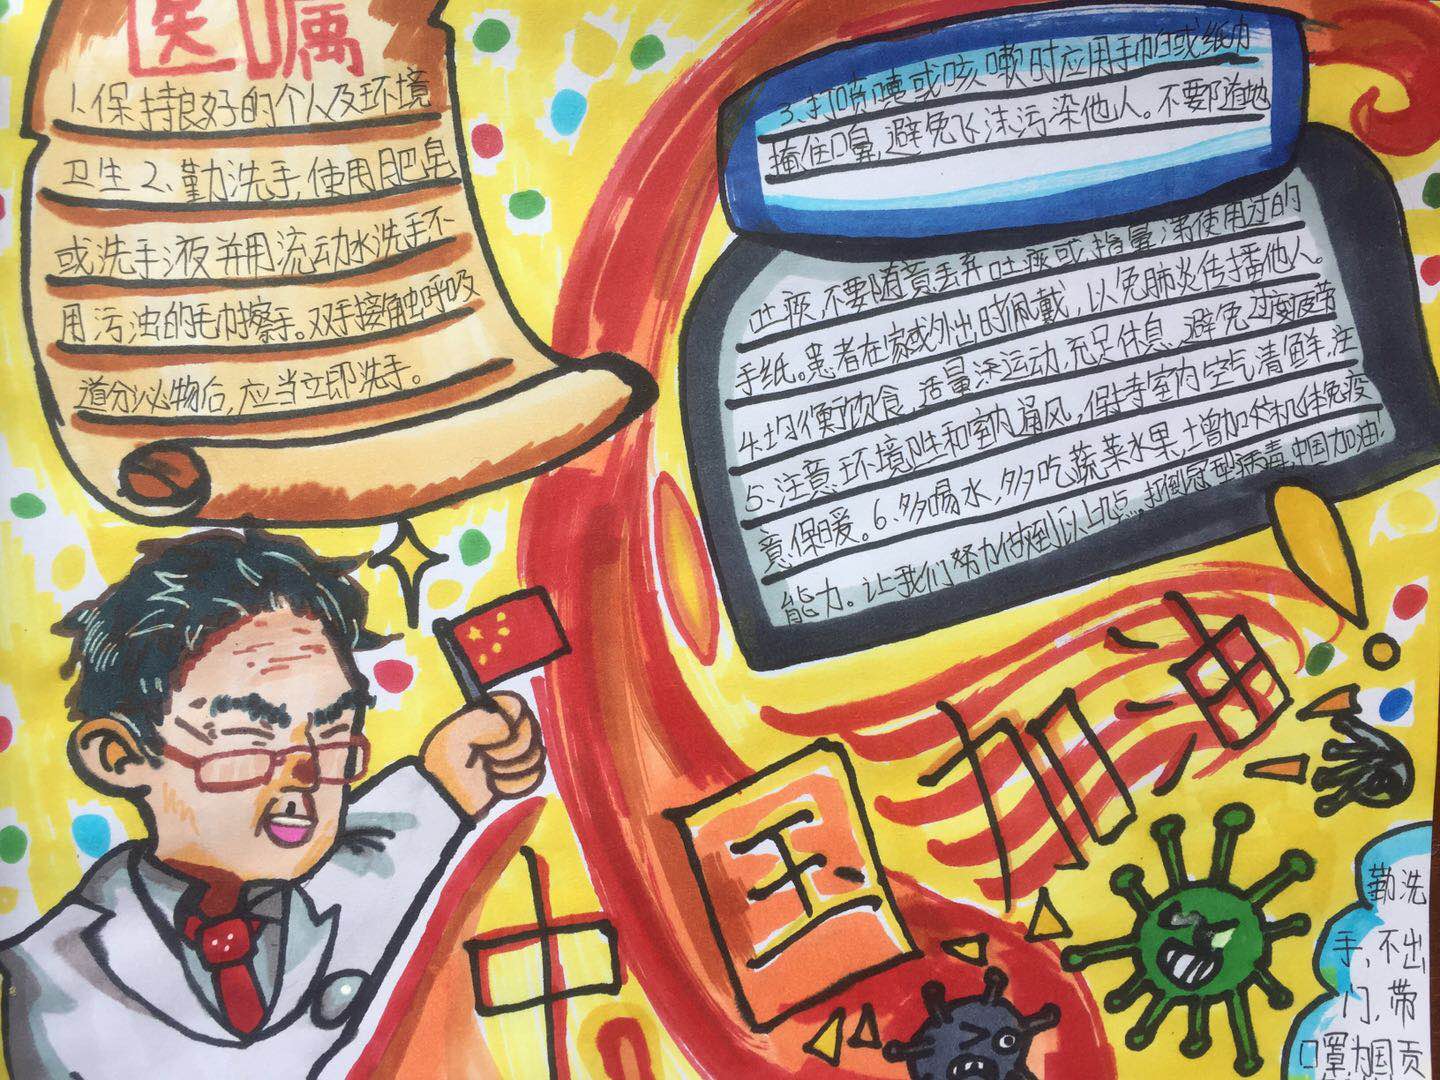 医嘱
1.保持良好的个人及环境
卫生2、勤洗手,使用肥皂
或洗手液并用流动水洗手不
用污浊的毛巾擦手。双手接触呼吸
道分泌物后,应当立即洗手。
3.打喷嚏或咳嗽时应用手帕或纸巾
掩住口鼻,避免飞沫污染他人。不要随地
吐痰,不要随意丢弃吐痰或擤鼻涕使用过的
手纸。患者在家或外出时佩戴,以免肺炎传播他人。
4.均衡饮食,适量运动,充足休息,避免过度疲劳
5.注意环境卫生和室内通风,保持室内空气清鲜,注
意保暖。6、多喝水,多吃蔬菜水果,增加机体免疫
能力。让我们努力做到以上几点,打倒冠型病毒,中国加油!
中国加油!
勤洗
手,不出
门,带
口罩,为国贡